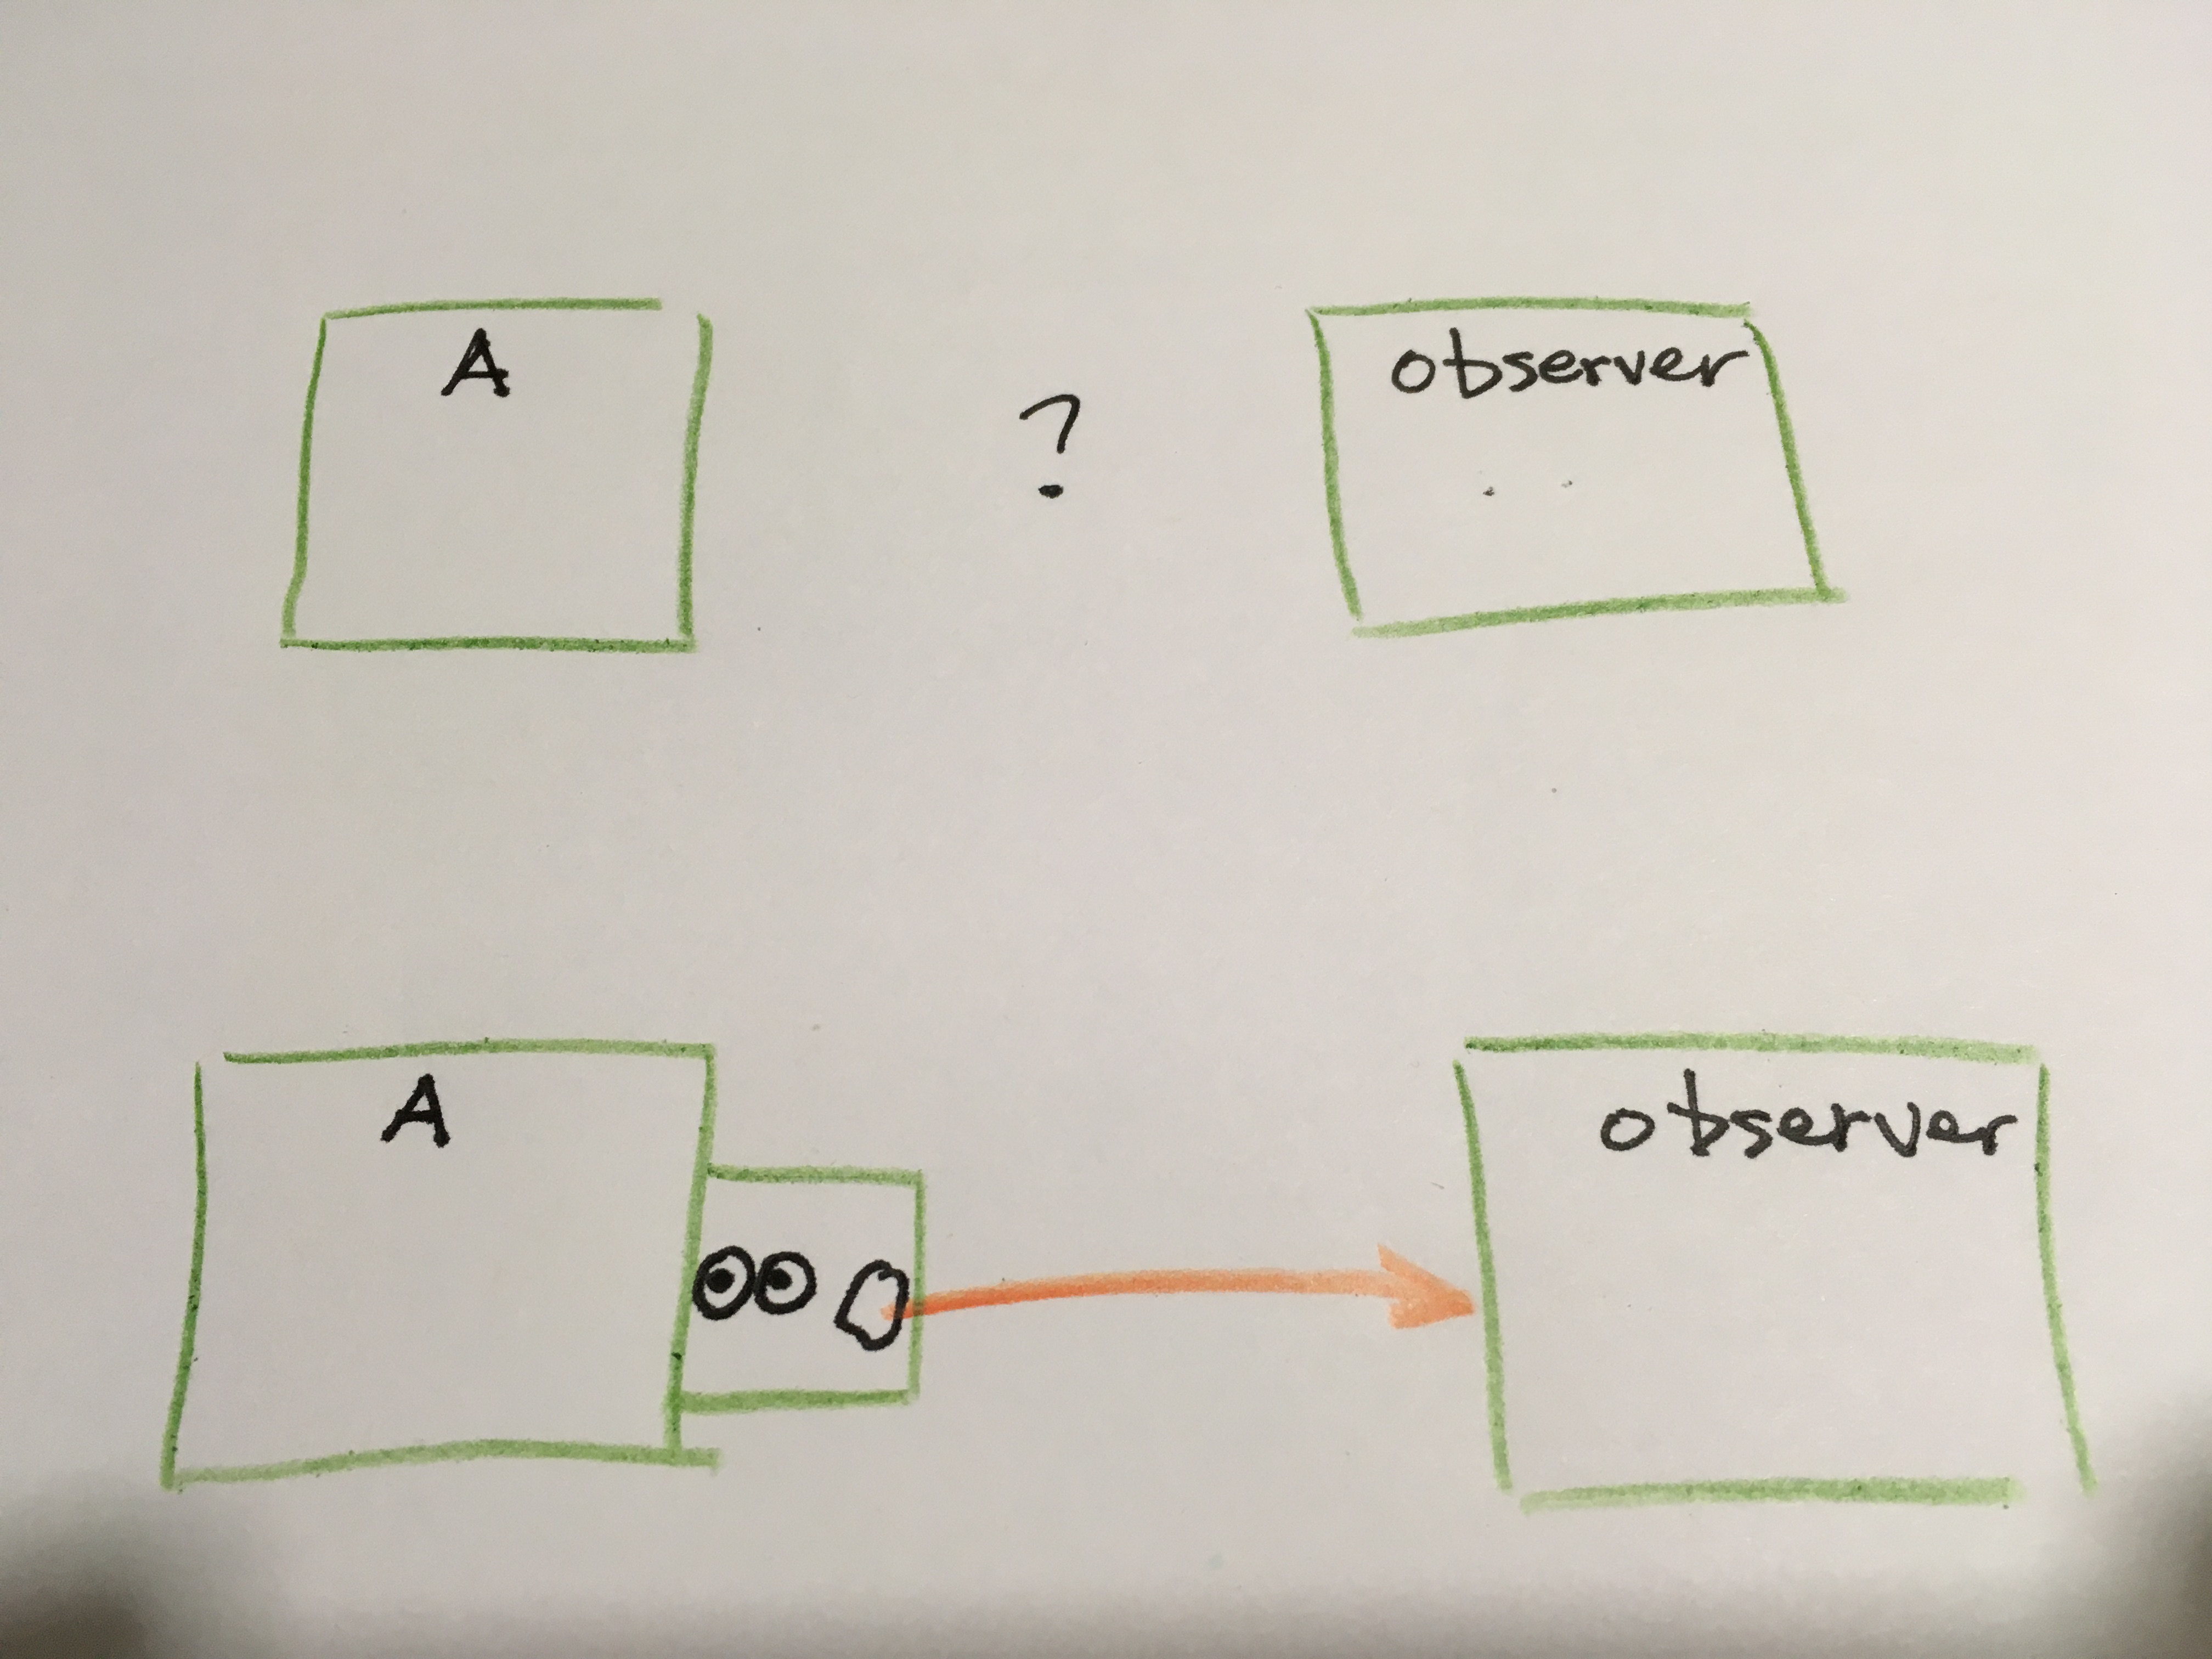 A ? observer
A observer